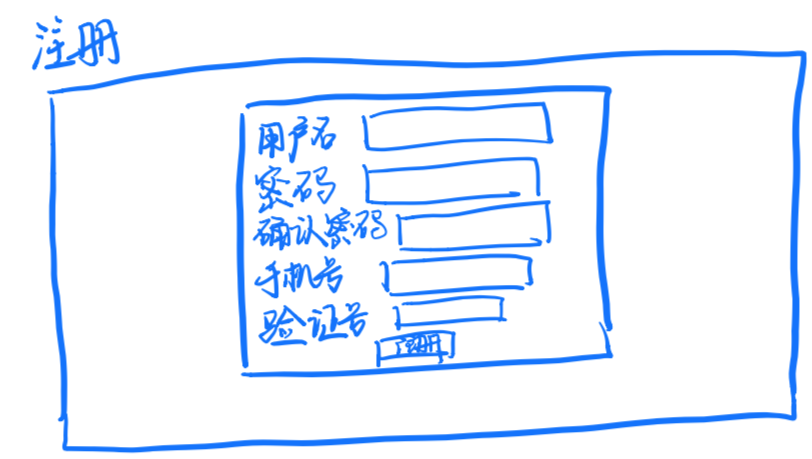 注册
用户名
密码
确认密码
手机号
验证号
注册